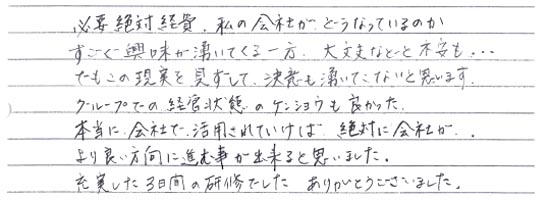 必要絶対経費、私の会社が、どうなっているのか
すごく興味が湧いてくる一方、大丈夫なのかと不安も・・・
でもこの現実を見ずして、決意も湧いてこないと思います。
グループでの経営状態のケンショウも良かった。
本当に会社で活用されていけば 絶対に会社が、
より良い方向に進む事が出来ると思いました。
充実した3日間の研修でした ありがとうございました。